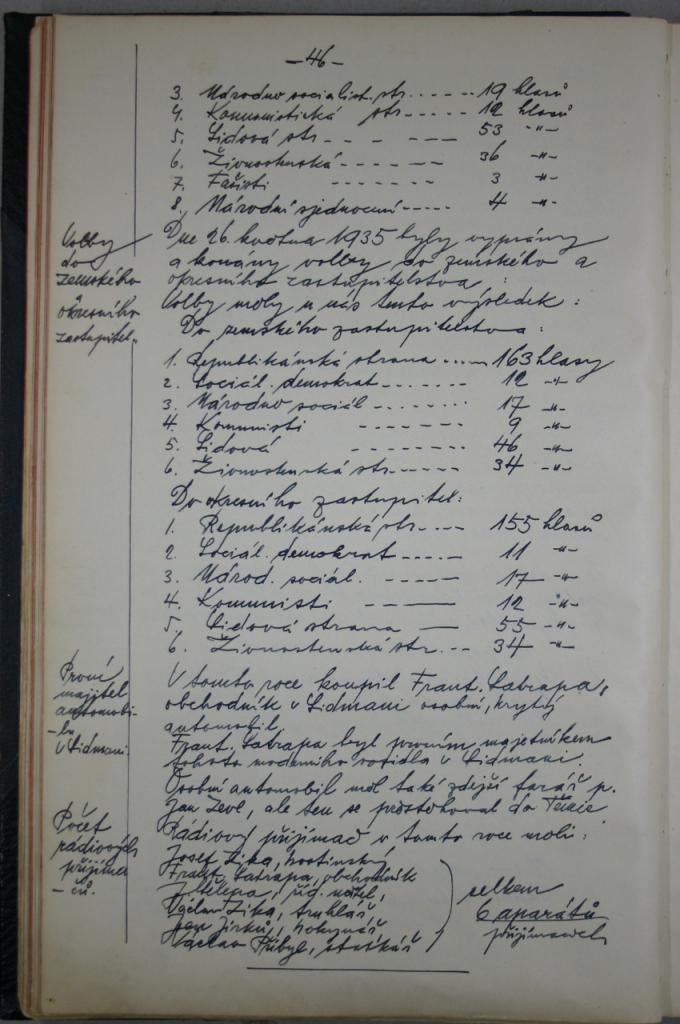 - 46 -
3. Národně socialist. str. ----- 19 hlasů
4. Komunistická str. ----- 12 hlasů
5. Lidová str. - - - --- 53 -"-
6. Živnostenská ------ 36 -"-
7. Fašisti ------- 3 -"-
8. Národní sjednocení ----- 4 -"-
Volby
do
zemského
a
okresního
zastupitel.
Dne 26. května 1935 byly vypsány
a konány volby do zemského a
okresního zastupitelstva.
Volby měly u nás tento výsledek:
Do zemského zastupitelstva:
1. Republikánská strana ..... 163 hlasy
2. Sociál. demokrat ------- 12 -"-
3. Národně sociál ------- 17 -"-
4. Komunisti ------- 9 -"-
5. Lidová -------- 46 -"-
6. Živnostenská str. ----- 34 -"-
Do okresního zastupitel:
1. Republikánská str. ---- 155 hlasů
2. Sociál. demokrat ----- 11 -"-
3. Národ. sociál. ----- 17 -"-
4. Komunisti ---- 12 -"-
5. Lidová strana — 55 -"-
6. Živnostenská str. -- 34 -"-
První
majitel
automobi-
-lu
v Lidmani.
V tomto roce koupil Frant. Satrapa,
obchodník v Lidmani osobní, krytý
automobil.
Frant. Satrapa byl prvním majetníkem
tohoto moderního vozidla v Lidmani.
Osobní automobil měl také zdejší farář p.
Jan , ale ten se přestěhoval do
Počet
rádiových
přijíma-
-čů.
Rádiový přijímač v tomto roce měli:
Josef Zika, hostinský
Frant. Satrapa, obchodník
, říd. učitel,
Václav Zika, truhlář
Jan Jirků, hokynář
Václav Přibyl, statkář
celkem
6 aparátů
přijímacích